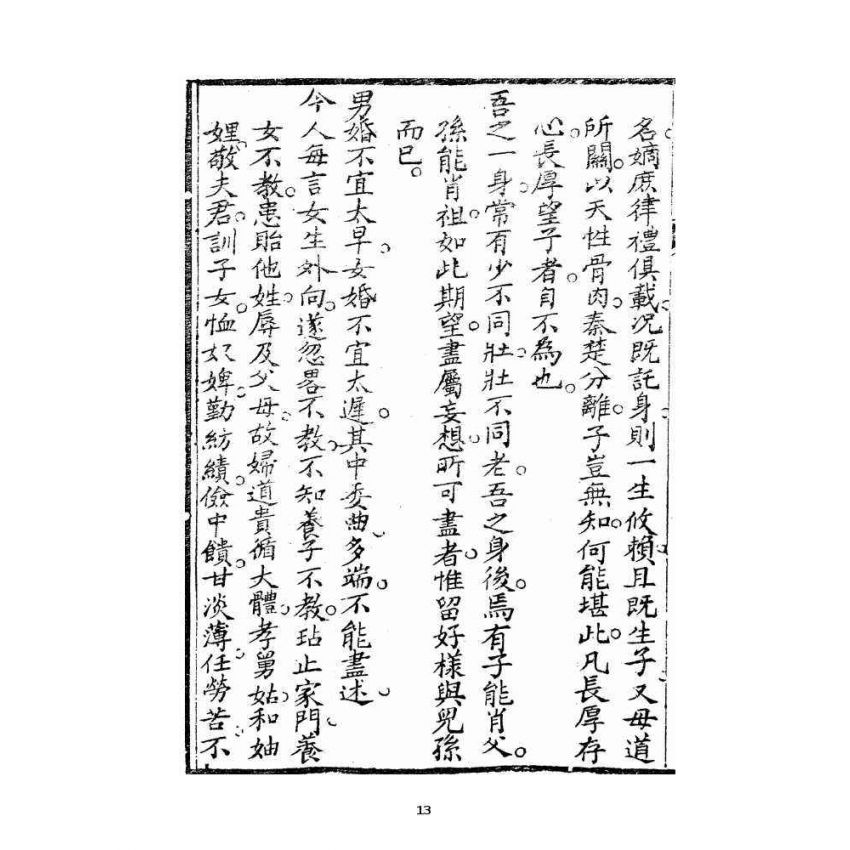 名嫡庶律禮俱載况既託身則一生攸賴且既生子又母道
所關以天性骨肉秦楚分離子豈無知何能堪此凡長厚存
心長厚望子者自不為也
吾之一身常有少不同壯壯不同老吾之身後焉有子能肖父
孫能肖祖如此期望盡屬妄想所可盡者惟留好樣與兒孫
而已
男婚不宜太早女婚不宜太遲其中委曲多端不能盡述
今人每言女生外向遂忽畧不教不知養子不教玷止家門養
女不教患貽他姓辱及父母故婦道貴循大體孝舅姑和妯
娌敬夫君訓子女恤奴婢勤紡績儉中饋甘淡薄任勞苦不
13